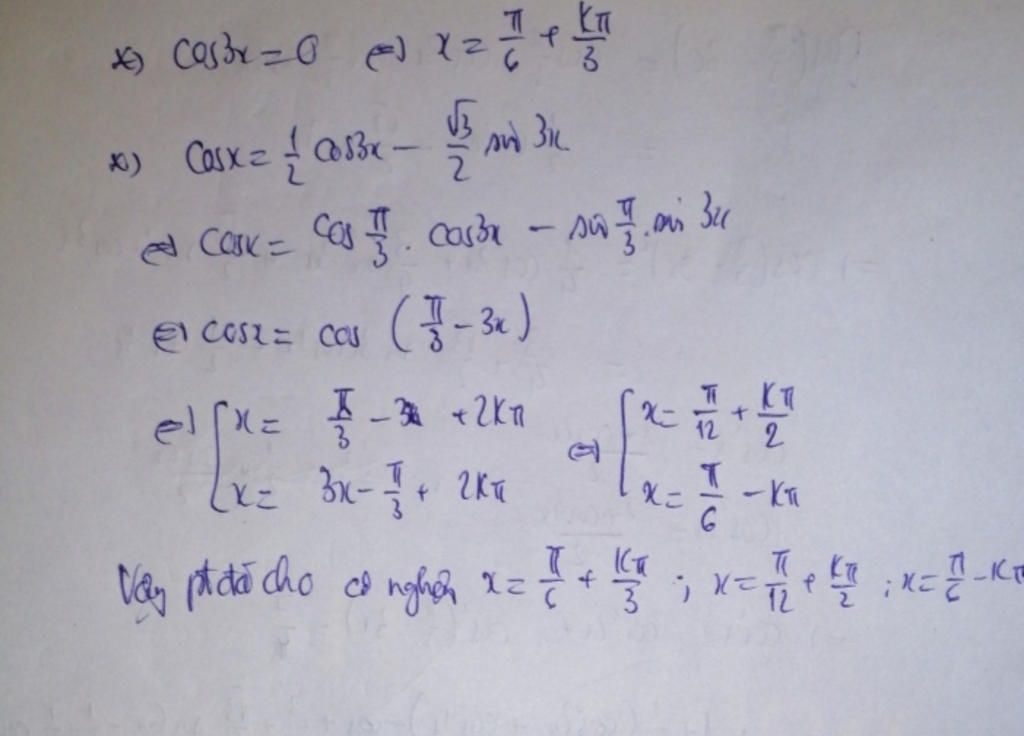 *) cos3x = 0 ⇔ x = π/6 + kπ/3
*) cosx = 1/2 cos3x − √3/2 sin 3x
⇔ cosx = cos π/3 . cos3x − sin π/3 . sin 3x
⇔ cosx = cos (π/3 − 3x)
⇔ [ x = π/3 − 3x + 2kπ ⇔ [ x = π/12 + kπ/2
x = 3x − π/3 + 2kπ x = π/6 − kπ
Vậy pt đã cho có nghiệm x = π/6 + kπ/3 ; x = π/12 + kπ/2 ; x = π/6 − kπ